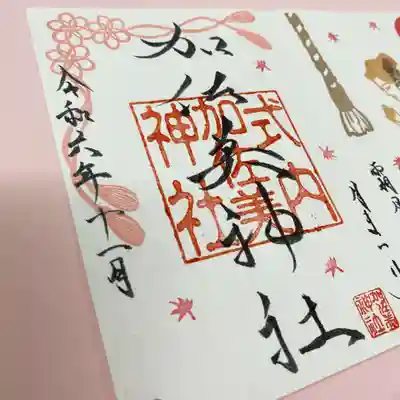 霜月
加佐美神社
式内
加佐美
神社
令和六年十一月